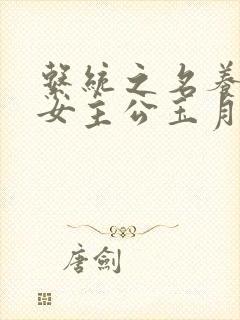 繫統之名養
女主公玉月
唐劍